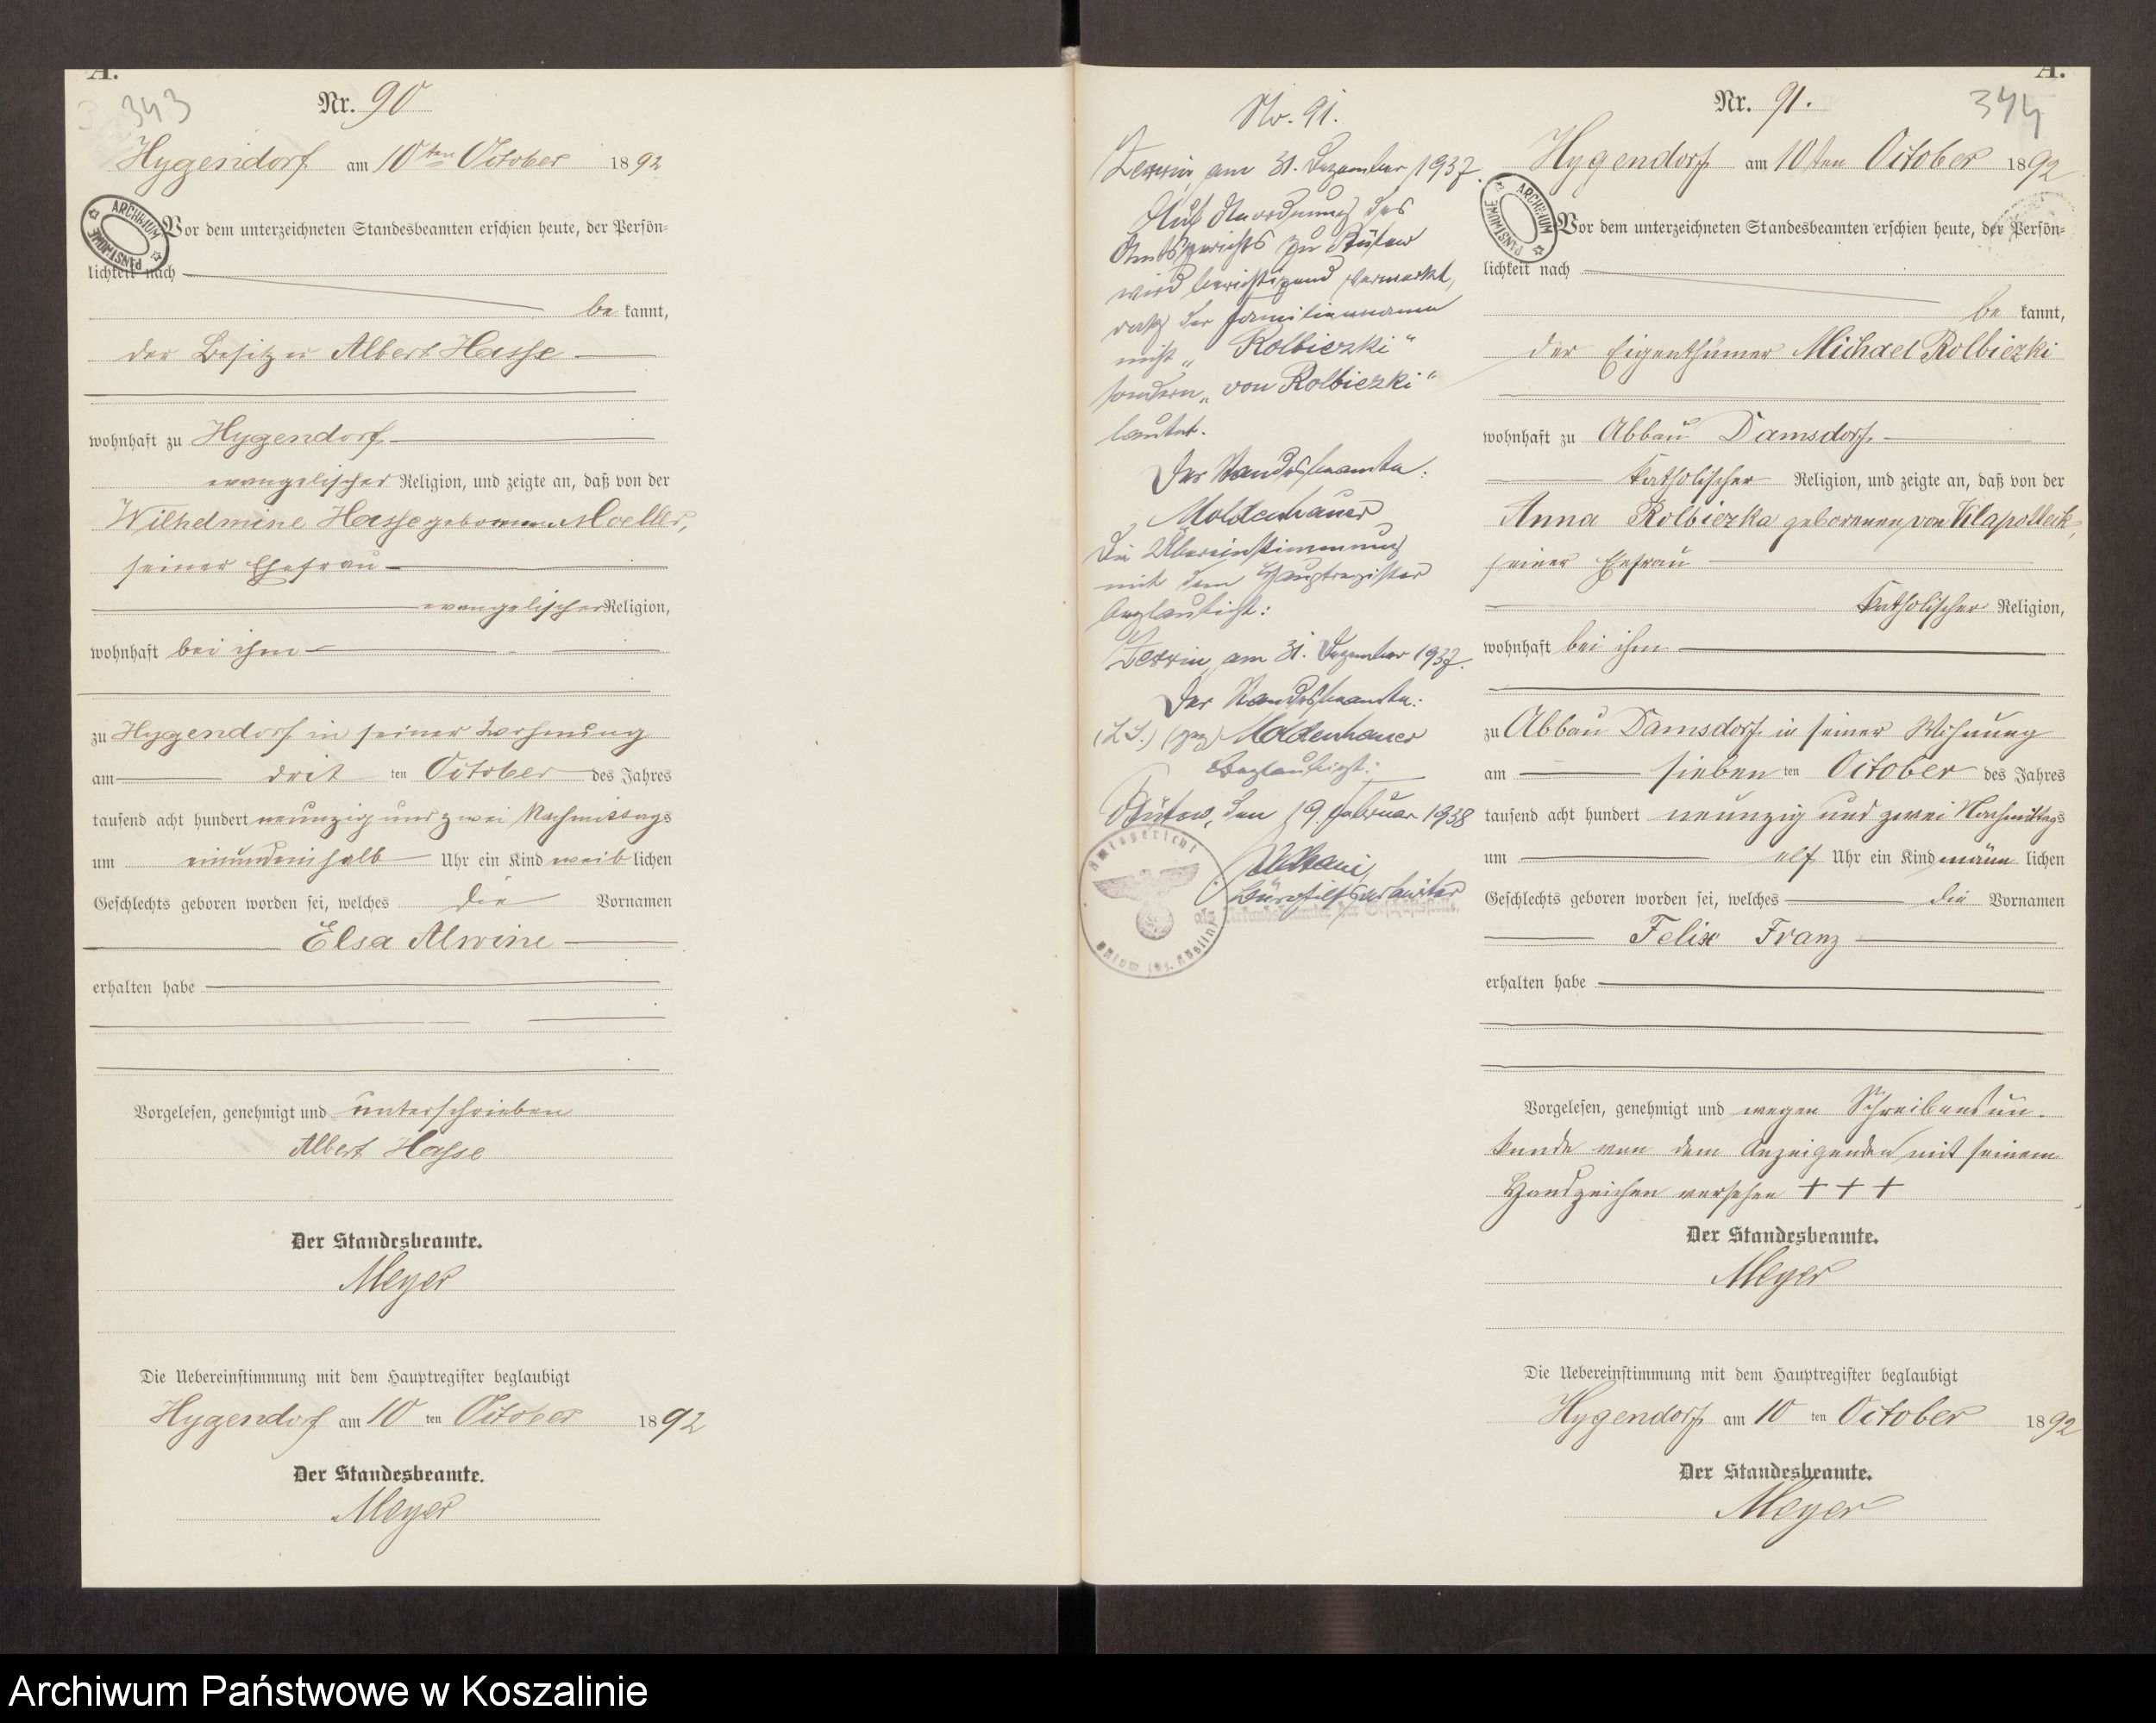 A.
343
Nr. 90
Hygendorf am 10ten October 1892
ARCHIWUM PAŃSTWOWE
Vor dem unterzeichneten Standesbeamten erschien heute, der Persön=
lichkeit nach
be kannt,
der Besitzer Albert Hasse
wohnhaft zu Hygendorf
evangelischer Religion, und zeigte an, daß von der
Wilhelmine Hasse geborenen Moeller,
seiner Ehefrau
evangelischer Religion,
wohnhaft bei ihm
zu Hygendorf in seiner Wohnung
am drit ten October des Jahres
tausend acht hundert neunzig und zwei Nachmittags
um einundeinhalb Uhr ein Kind weib lichen
Geschlechts geboren worden sei, welches die Vornamen
Elsa Alwine
erhalten habe
Vorgelesen, genehmigt und unterschrieben
Albert Hasse
Der Standesbeamte.
Meyer
Die Uebereinstimmung mit dem Hauptregister beglaubigt
Hygendorf am 10 ten October 1892
Der Standesbeamte.
Meyer
No. 91.
am 31. Dezember 1937.
Auf Anordnung des
Amtsgerichts zu Bütow
wird berichtigend vermerkt,
daß der Familienname
nicht „Rolbiezki“
sondern „von Rolbiezki“
lautet.
Der Standesbeamte:
Moldenhauer
Die Übereinstimmung
mit dem Hauptregister
beglaubigt:
am 31. Dezember 1937.
Der Standesbeamte:
(L.S.) (gez) Moldenhauer
Beglaubigt:
Bütow, den 19. Februar 1938
Amtsgericht
als Urkundsbeamter der Geschäftsstelle.
Bütow Bz. Köslin
A.
344
Nr. 91.
Hygendorf am 10ten October 1892
ARCHIWUM PAŃSTWOWE
Vor dem unterzeichneten Standesbeamten erschien heute, der Persön=
lichkeit nach
be kannt,
der Eigenthümer Michael Rolbiezki
wohnhaft zu Abbau Damsdorf
katholischer Religion, und zeigte an, daß von der
Anna Rolbiezka geborenen von Klapotteck,
seiner Ehefrau
katholischer Religion,
wohnhaft bei ihm
zu Abbau Damsdorf in seiner Wohnung
am sieben ten October des Jahres
tausend acht hundert neunzig und zwei Nachmittags
um elf Uhr ein Kind männ lichen
Geschlechts geboren worden sei, welches die Vornamen
Felix Franz
erhalten habe
Vorgelesen, genehmigt und wegen Schreibensun=
kunde von dem Anzeigenden mit seinem
Handzeichen versehen + + +
Der Standesbeamte.
Meyer
Die Uebereinstimmung mit dem Hauptregister beglaubigt
Hygendorf am 10 ten October 1892
Der Standesbeamte.
Meyer
Archiwum Państwowe w Koszalinie